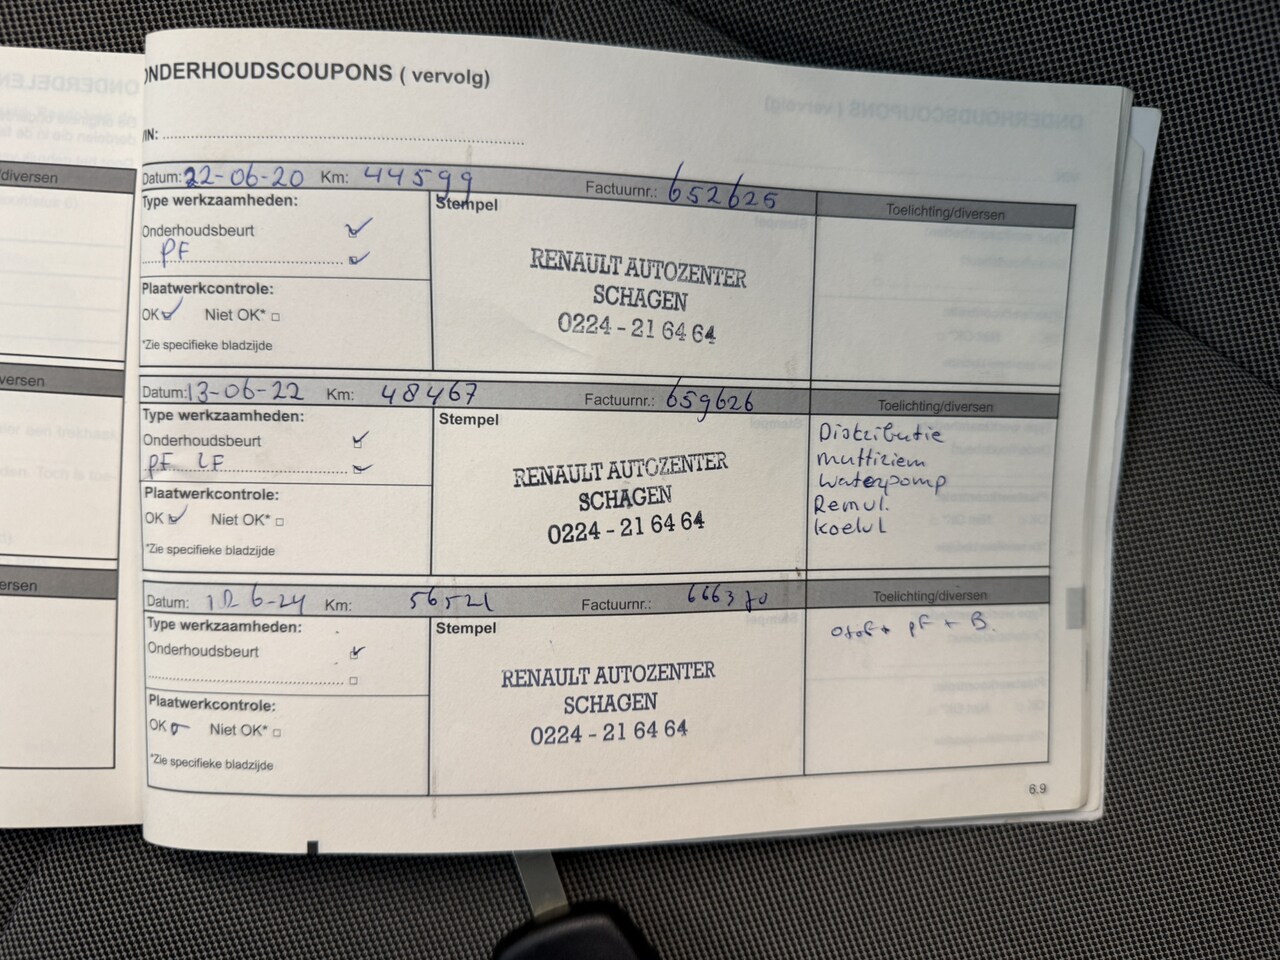 ONDERHOUDSCOUPONS ( vervolg)
VIN:
/diversen
Datum: 22-06-20 Km: 44599 Factuurnr.: 652625
Toelichting/diversen
Type werkzaamheden:
Stempel
Onderhoudsbeurt
PF
Plaatwerkcontrole:
OK Niet OK*
*Zie specifieke bladzijde
RENAULT AUTOZENTER
SCHAGEN
0224 - 21 64 64
versen
Datum: 13-06-22 Km: 48467 Factuurnr.: 659626
Toelichting/diversen
Type werkzaamheden:
Stempel
Onderhoudsbeurt
PF LF
Plaatwerkcontrole:
OK Niet OK*
*Zie specifieke bladzijde
RENAULT AUTOZENTER
SCHAGEN
0224 - 21 64 64
Distributie
multiriem
waterpomp
Remvl.
koelvl
ersen
Datum: 6-24 Km: 56521 Factuurnr.: 666370
Toelichting/diversen
Type werkzaamheden:
Stempel
Onderhoudsbeurt
Plaatwerkcontrole:
OK Niet OK*
*Zie specifieke bladzijde
RENAULT AUTOZENTER
SCHAGEN
0224 - 21 64 64
+ PF + B.
6.9